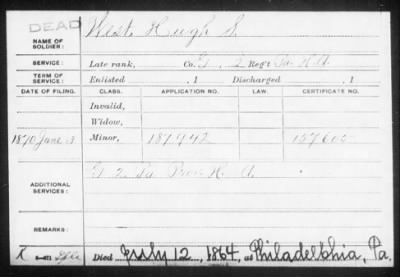 DEAD
West, Hugh S.
NAME OF SOLDIER:
SERVICE: Late rank, Co. G, 2 Reg't Pa. H.A.
TERM OF SERVICE: Enlisted , 1 Discharged , 1
DATE OF FILING. CLASS. APPLICATION NO. LAW. CERTIFICATE NO.
Invalid,
Widow,
1870 June 3 Minor, 187942
ADDITIONAL SERVICES: G 2 Pa Prov. H. A.
REMARKS:
Died July 12, 1864, at Philadelphia, Pa.